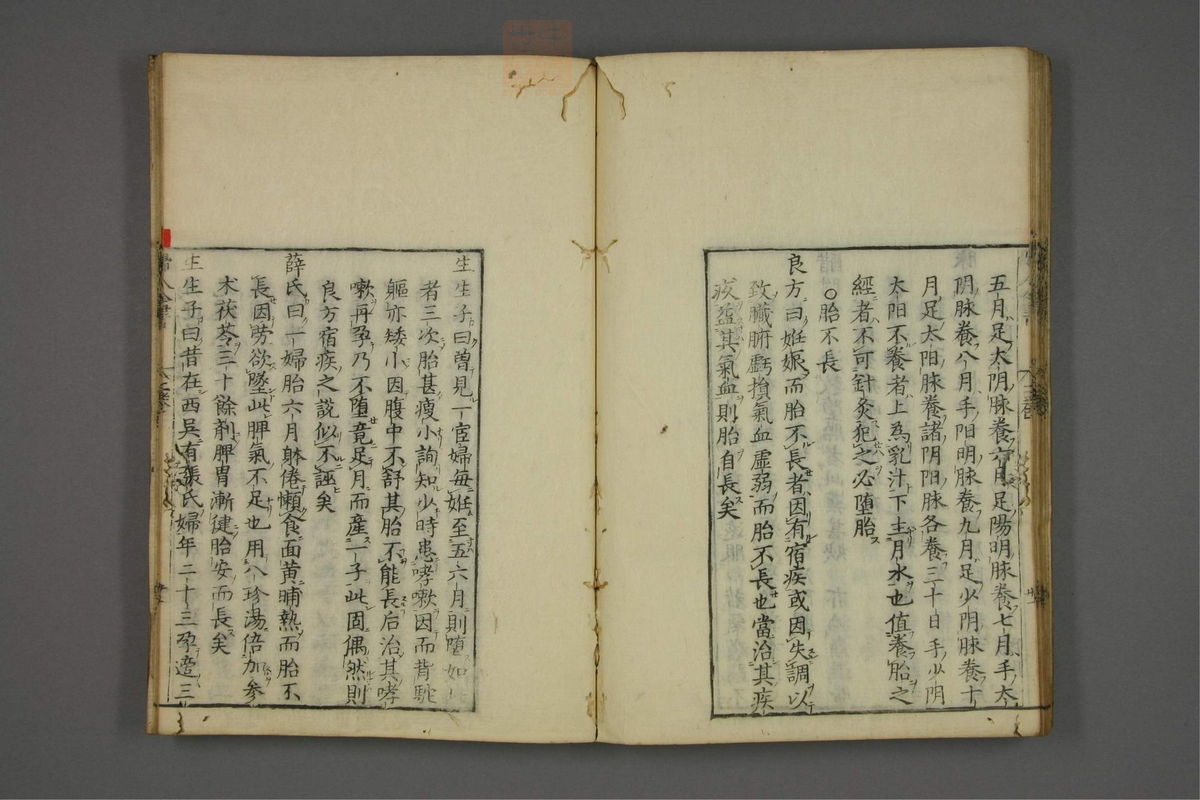 五月足太阴脉養六月足陽明脉養七月手太
阴脉養八月手阳明脉養九月足少阴脉養十
月足太阳脉養諸阴阳脉各養三十日手少阴
太阳不養者上為乳汁下主月水也值養胎之
經者不可針灸犯之必堕胎
○胎不長
良方曰妊娠而胎不長者因有宿疾或因失調以
致臟腑虧損氣血虛弱而胎不長也當治其疾
疚益其氣血則胎自長矣
生生子曰曽見一宦婦每妊至五六月則堕如
者三次胎甚瘦小詢知少時患哮嗽因而背駝
軀亦矮小因腹中不舒其胎不能長后治其哮
嗽再孕乃不堕竟足月而産一子此固偶然則
良方宿疾之說似不誣矣
薛氏曰一婦胎六月躰倦懶食面黄晡熱而胎不
長因劳欲墜此脾氣不足也用八珍湯倍加參
术茯苓三十餘剤脾胃漸健胎安而長矣
生生子曰昔在西吳有張氏婦年二十三孕逾三